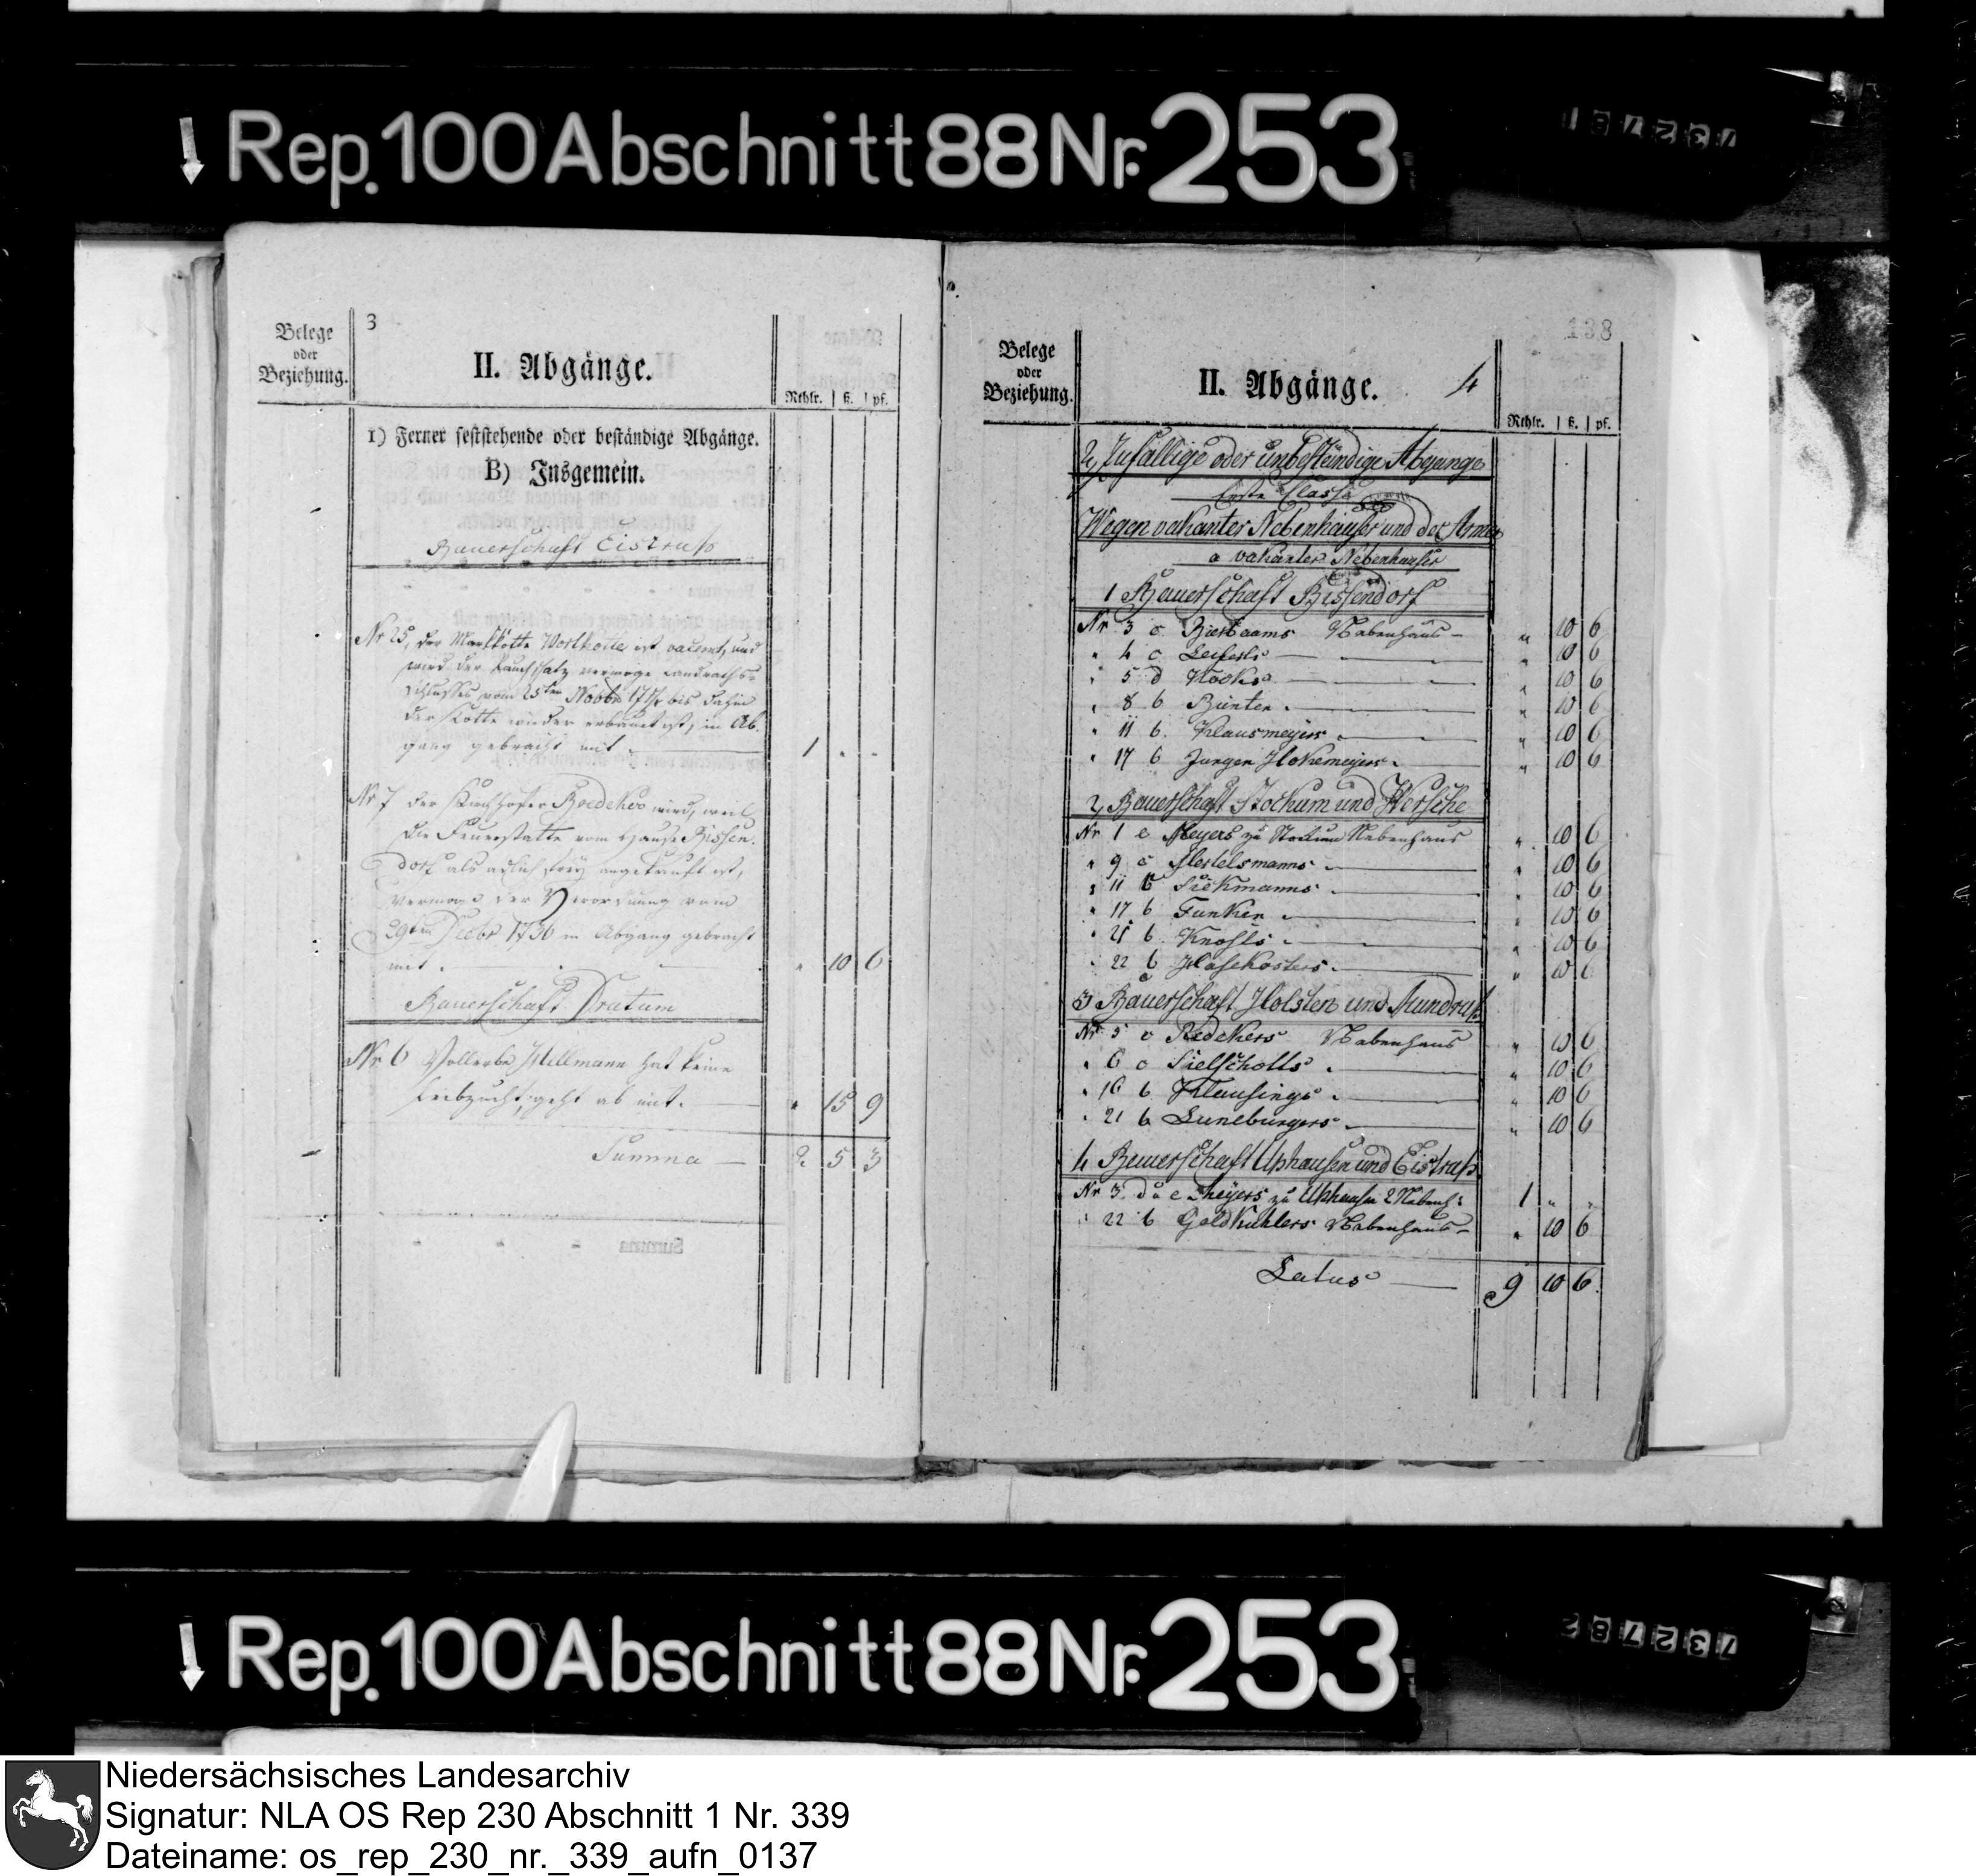 Rep. 100 Abschnitt 88 Nr. 253
3
Belege
oder
Beziehung.
II. Abgänge.
Rthlr. ß. pf.
1) Ferner feststehende oder beständige Abgänge.
B) Insgemein.
Bauerschaft Eistrup
Nr 25, der Markkötte Wortkotte ist vacant, und
wird der Rauchschatz vermöge Landraths-
schlusses vom 25ten Novbr bis dahin
der Kotte wieder erbauet ist, in Ab-
gang gebracht mit 1 " "
Nr 7 der Kirchhöfer Boedeker wird, weil
die Feuerstätte vom Hause Bissen-
dorf als adlich frey angekauft ist,
vermöge der Verordnung vom
29ten Decbr 1736 in Abgang gebracht
mit " 10 6
Bauerschaft Dratum
Nr 6 Vollerbe Hellmann hat keine
Leibzucht, geht ab mit " 15 9
Summa 2 5 3
138
Belege
oder
Beziehung.
II. Abgänge. 4
Rthlr. ß. pf.
2, Zufällige oder unbeständige Abgänge
Erste Classe
Wegen vakanter Nebenhäuser und der Armen
a vakanter Nebenhäuser
1 Bauerschaft Bissendorf
Nr 3 c Bierbaums Nebenhaus " 10 6
" 4 c " 10 6
" 5 d " 10 6
" 8 b Bünten " 10 6
" 11 b Klausmeyers " 10 6
" 17 b Jürgen Hohemeyers " 10 6
2, Bauerschaft Stockum und Wersche
Nr 1 e Meyers zu Stockum Nebenhaus " 10 6
" 9 c Mertelsmanns " 10 6
" 11 b Siekmanns " 10 6
" 17 b Funken " 10 6
" 21 b " 10 6
" 22 b Hasekosters " 10 6
3 Bauerschaft Holsten und Mündrup
Nr 5 c Redekers Nebenhaus " 10 6
" 6 c Sielschotts " 10 6
" 16 b Klausings " 10 6
" 21 b Luneburgers " 10 6
4 Bauerschaft Uphausen und Eistrup
Nr 3 d u e Meyers zu Uphausen 2 Nebenh: 1 " "
" 22 b Goldkuhlers Nebenhaus " 10 6
Latus 9 10 6
Rep. 100 Abschnitt 88 Nr. 253
Niedersächsisches Landesarchiv
Signatur: NLA OS Rep 230 Abschnitt 1 Nr. 339
Dateiname: os_rep_230_nr._339_aufn_0137